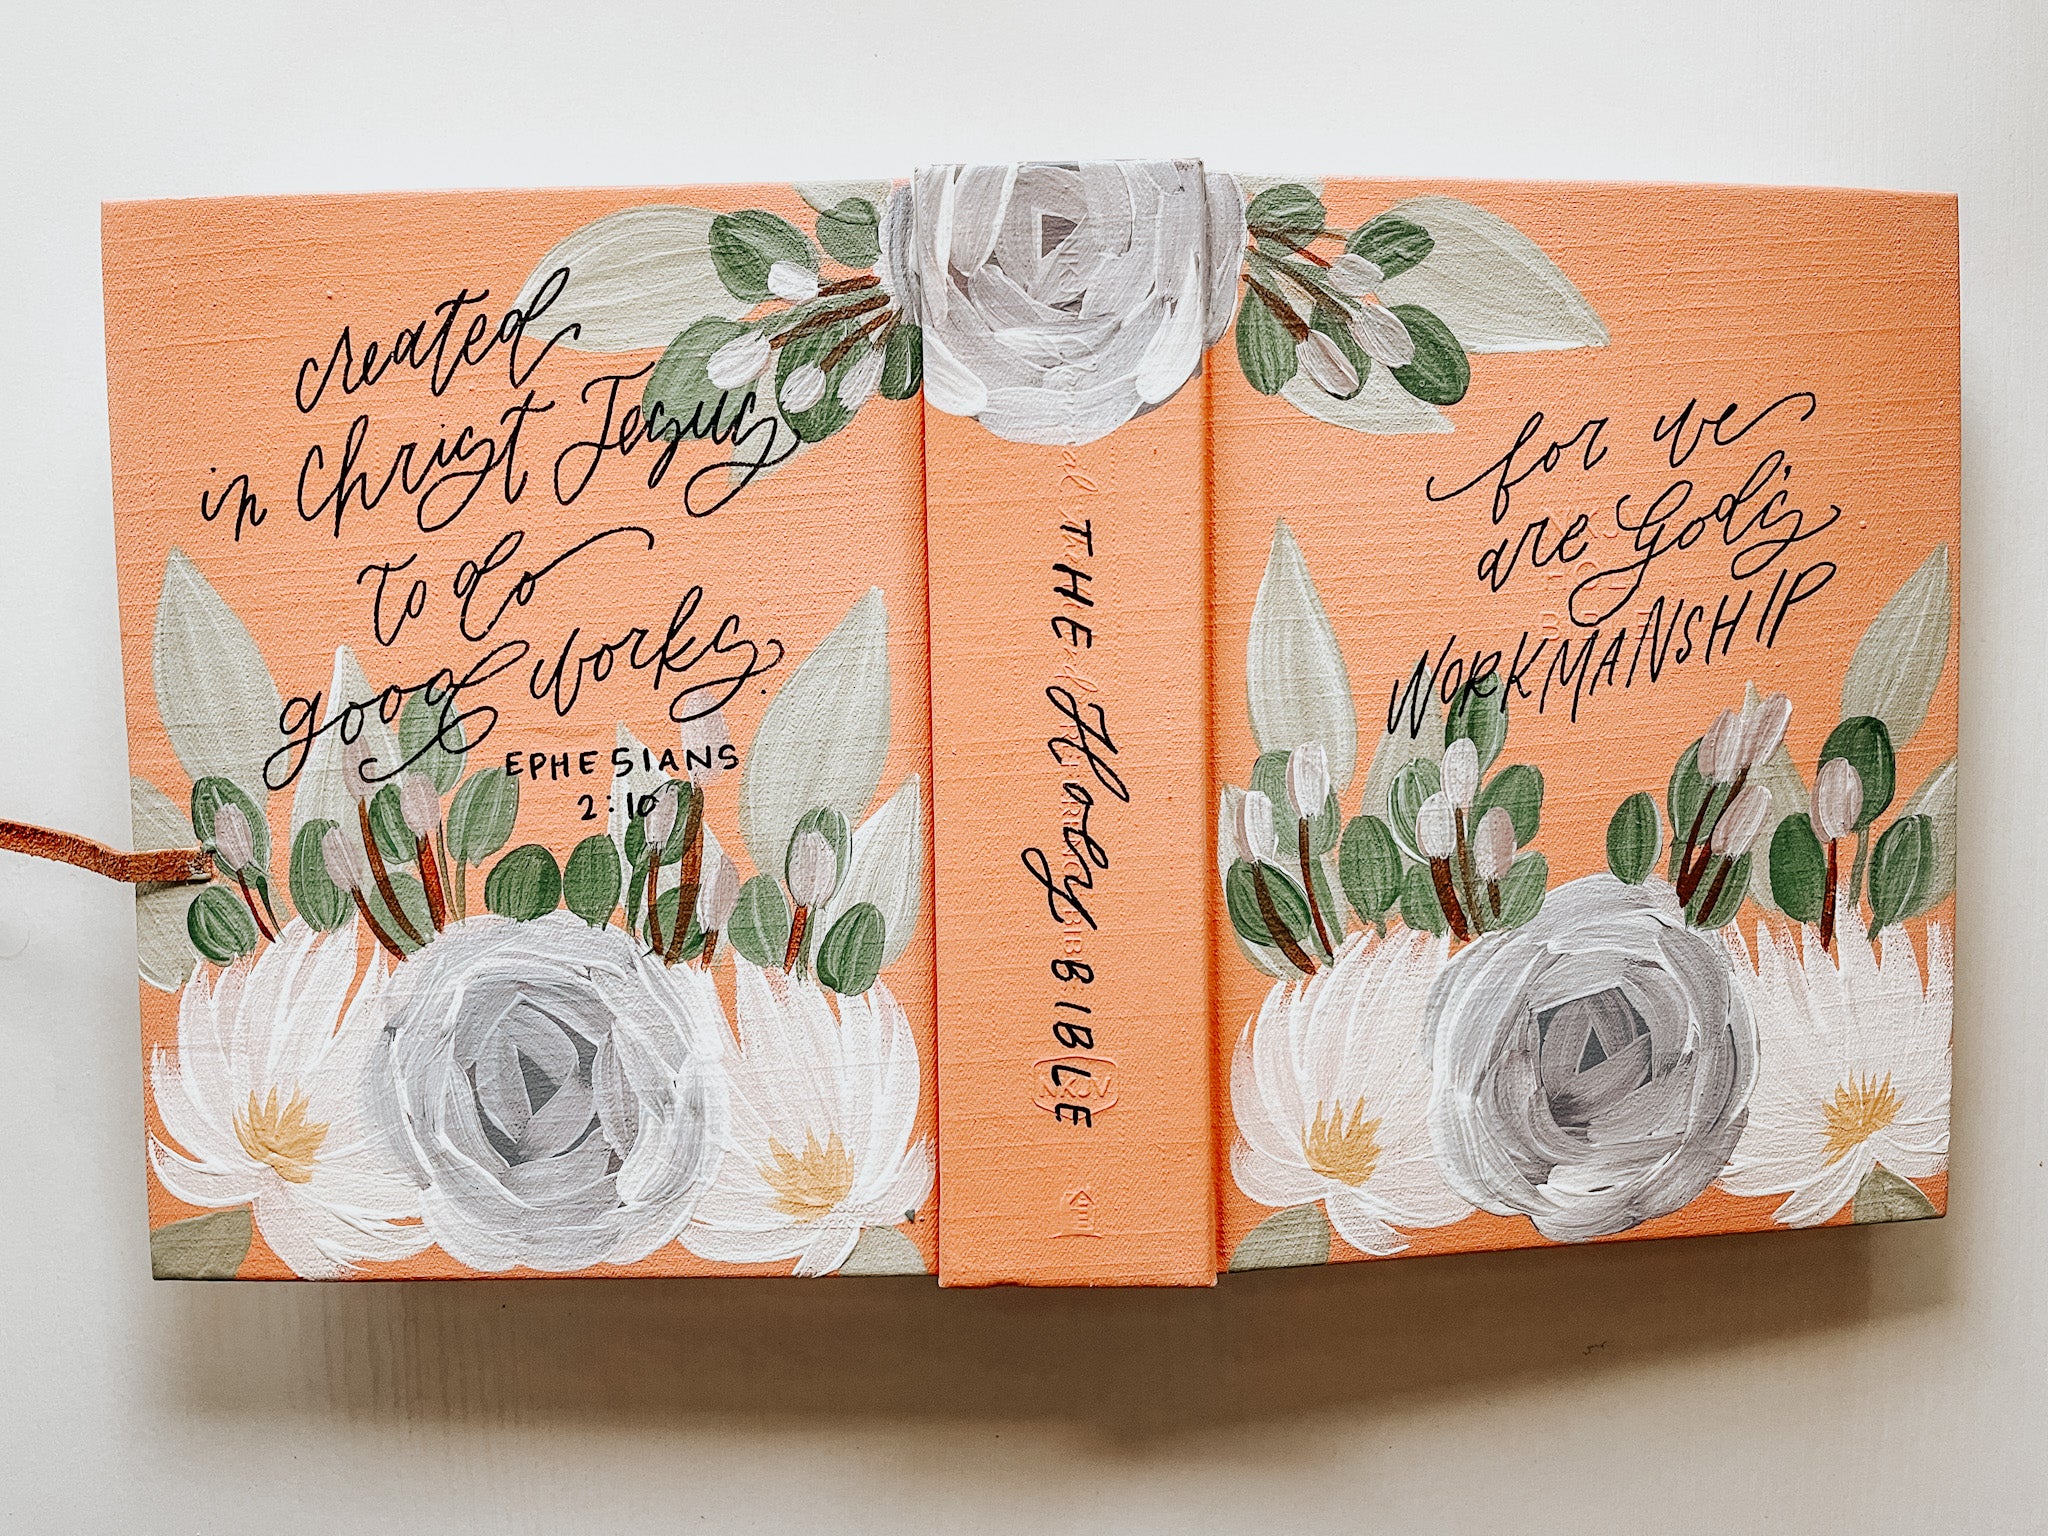 created
in Christ Jesus
to do
good works.
EPHESIANS
2:10
THE Holy BIBLE
NKJV
for we
are God's
WORKMANSHIP